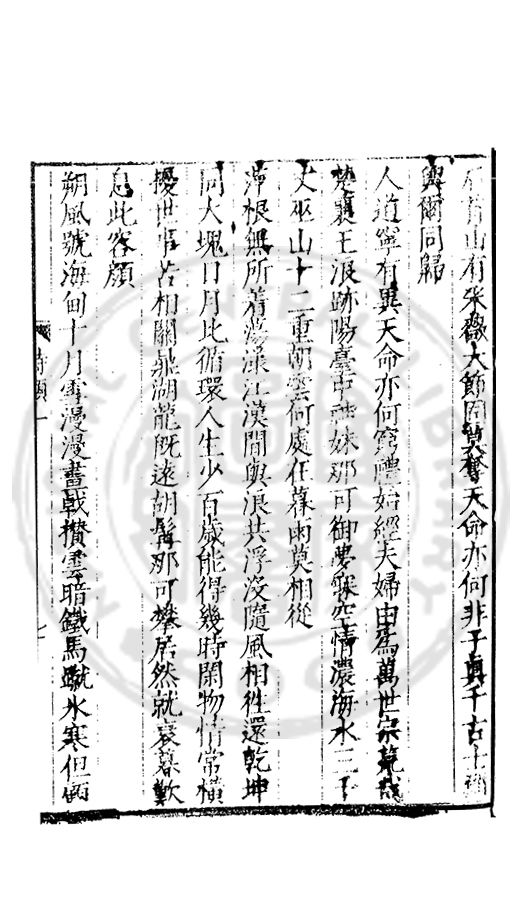 首山有采薇大節固莫奪天命亦何非子真千古士
與爾同歸
人道寧有異天命亦何窮禮始經夫婦由爲萬世宗荒哉
楚襄王浪跡陽臺中神妹那可御夢寐空情濃海水三千
丈巫山十二重朝雲何處在暮雨莫相從
萍根無所着蕩漾江漢間與浪共浮沒隨風相徃還乾坤
同大塊日月比循環人生少百歲能得幾時閑物情常橫
擾世事苦相關鼎湖龍旣遠胡髯那可攀居然就衰暮歎
息此容顔
朔風號海甸十月雪漫漫畫戟攢雲暗鐵馬蹴氷寒但